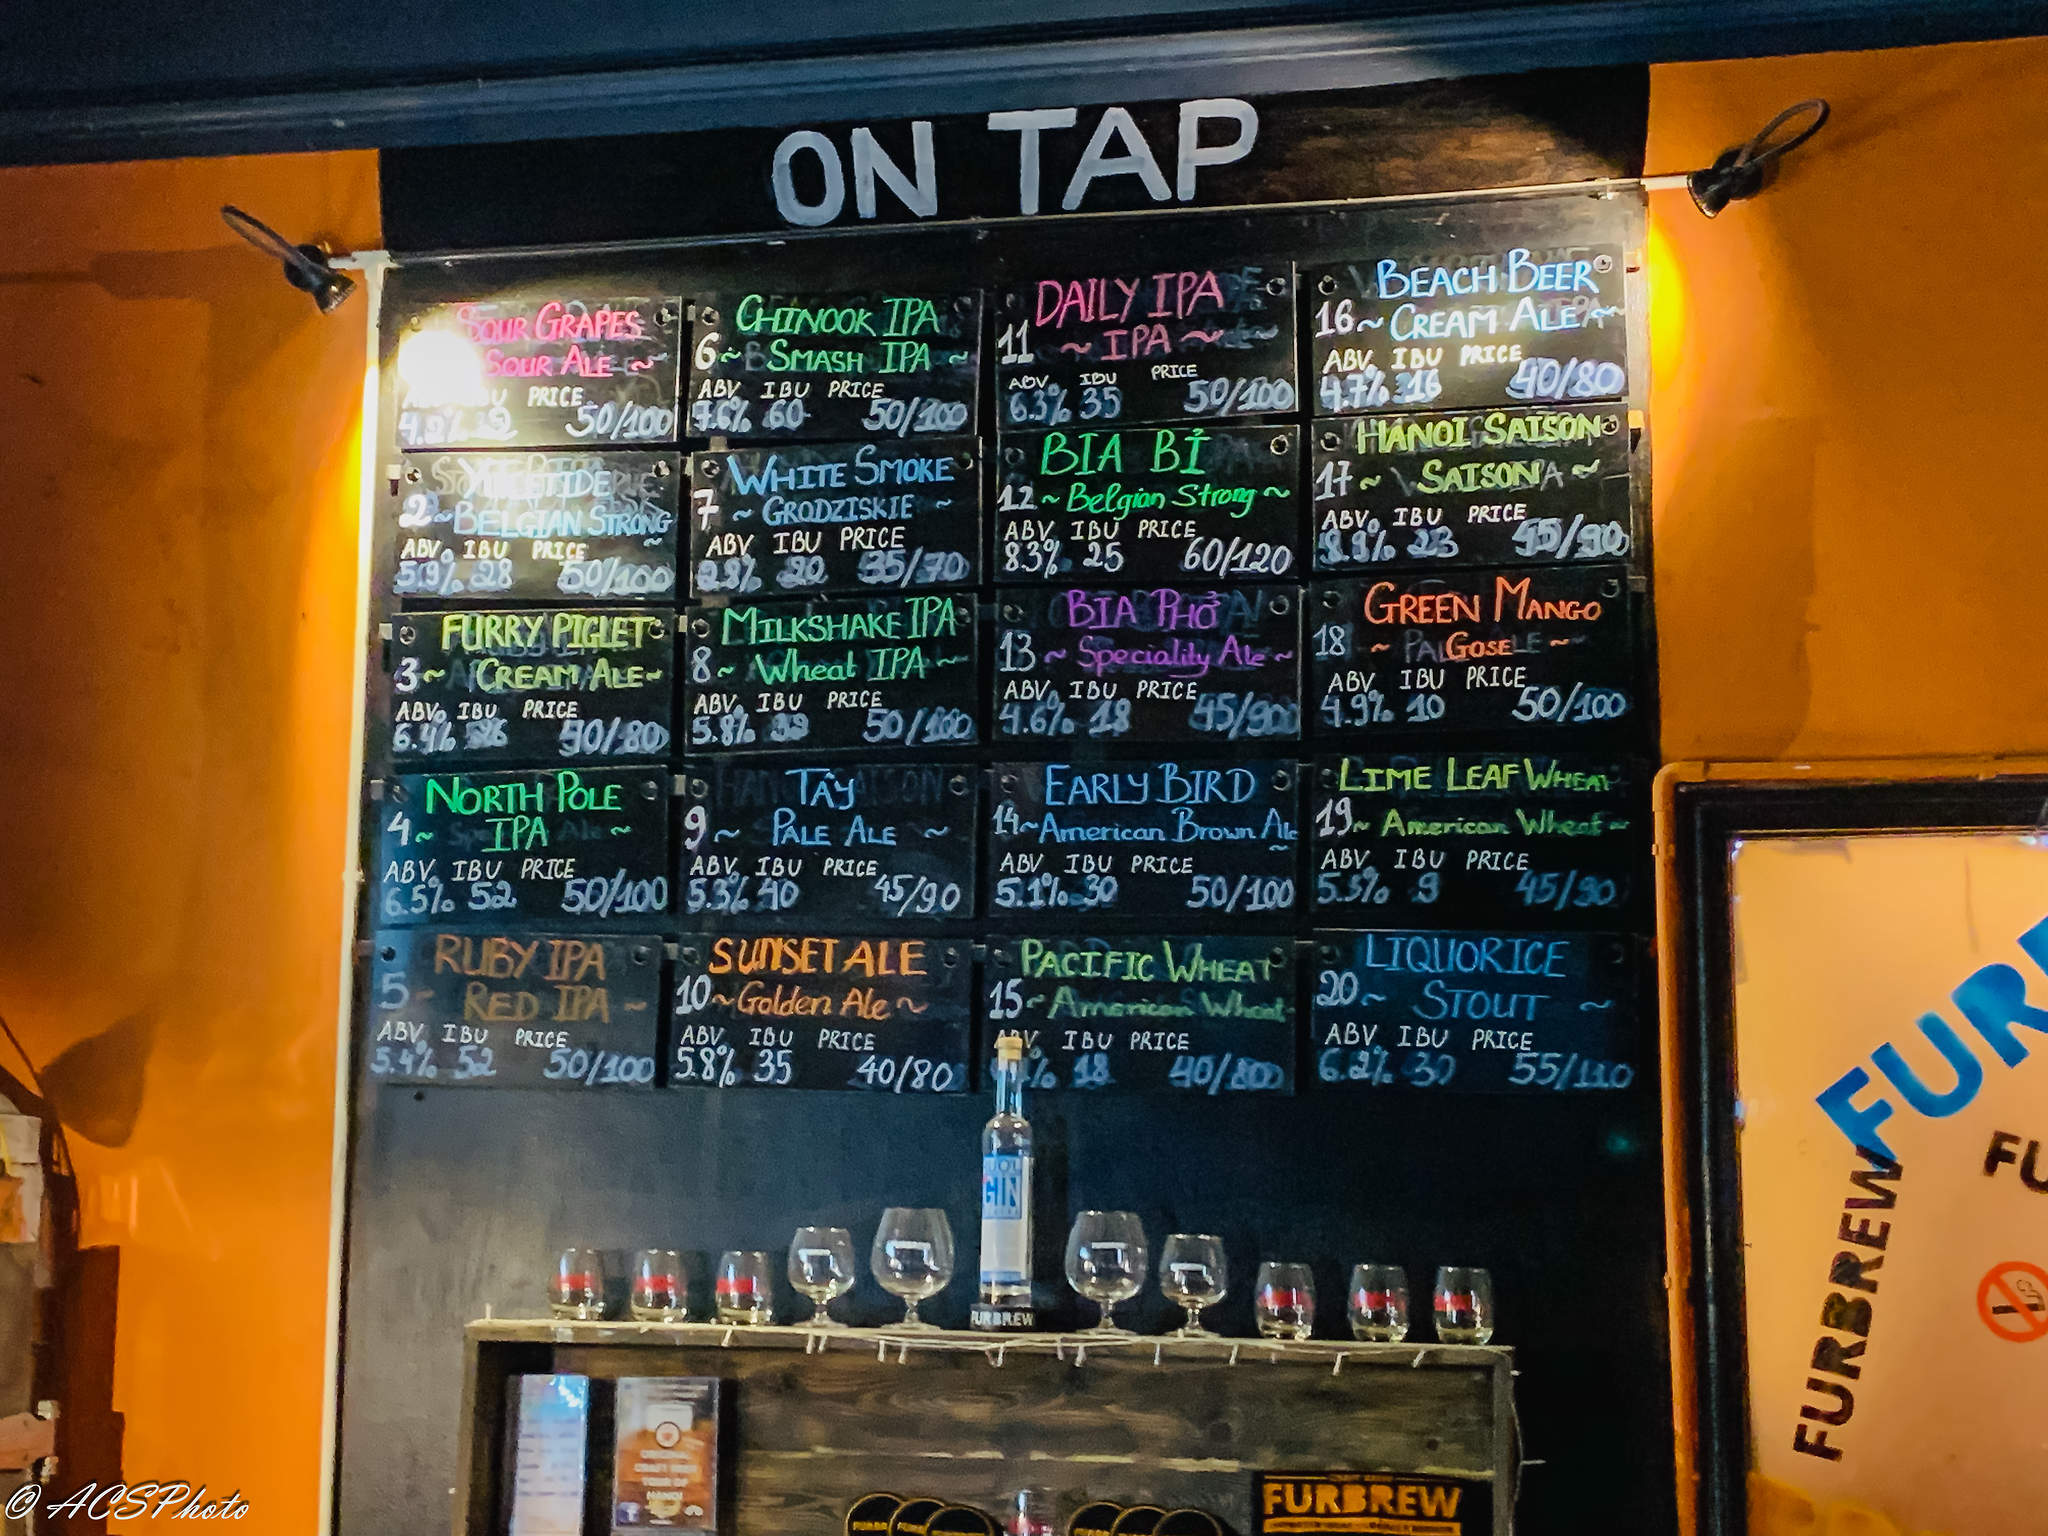 ON TAP
SOUR GRAPES
SOUR ALE ~
PRICE
50/100
YULETIDE
2 ~ BELGIAN STRONG ~
ABV IBU PRICE
5.9% 28 50/100
FURRY PIGLET
3 ~ CREAM ALE ~
ABV IBU PRICE
6.4% 40/80
NORTH POLE
4 ~ IPA ~
ABV IBU PRICE
6.5% 52 50/100
RUBY IPA
5 ~ RED IPA ~
ABV IBU PRICE
5.4% 52 50/100
CHINOOK IPA
6 ~ SMASH IPA ~
ABV IBU PRICE
7.6% 60 50/100
WHITE SMOKE
7 ~ GRODZISKIE ~
ABV IBU PRICE
2.8% 20 35/70
MILKSHAKE IPA
8 ~ Wheat IPA ~
ABV IBU PRICE
5.8% 50/100
TÂY
9 ~ PALE ALE ~
ABV IBU PRICE
5.3% 40 45/90
SUNSET ALE
10 ~ Golden Ale ~
ABV IBU PRICE
5.8% 35 40/80
DAILY IPA
11 ~ IPA ~
ABV IBU PRICE
6.3% 35 50/100
BIA BỈ
12 ~ Belgian Strong ~
ABV IBU PRICE
8.3% 25 60/120
BIA PHỞ
13 ~ Speciality Ale ~
ABV IBU PRICE
4.6% 18 45/90
EARLY BIRD
14 ~ American Brown Ale ~
ABV IBU PRICE
5.1% 30 50/100
PACIFIC WHEAT
15 ~ American Wheat ~
ABV IBU PRICE
18 40/80
BEACH BEER
16 ~ CREAM ALE ~
ABV IBU PRICE
4.7% 16 40/80
HANOI SAISON
17 ~ SAISON ~
ABV IBU PRICE
23 45/90
GREEN MANGO
18 ~ GOSE ~
ABV IBU PRICE
4.9% 10 50/100
LIME LEAF WHEAT
19 ~ American Wheat ~
ABV IBU PRICE
5.5% 9 45/90
LIQUORICE
20 ~ STOUT ~
ABV IBU PRICE
6.2% 30 55/110
GIN
FURBREW
FURBREW
FURBREW
© ACSPhoto